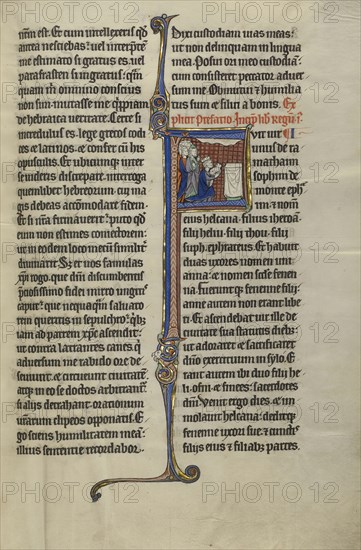 nūm est. Et cum intellexeris qd
antea nesciebas: uel interp̄tē
me estimato si gratus es: uel
parafrasten si ingratus: qm̄
quam m̄ omnino conscius
non sim mutasse me q̄ppiam
de hebraica ueritate. Certe si
incredulus es: lege grecos codi
ces & latinos: & confer cū his
opusculis. Et ubicumq; inter
se uideris discrepare: interroga
quemlibet hebreorum: cui ma
gis debeas accōmodare fidem.
Et si nr̄a firmauerit: puto qd
eum non estimes coniectorem:
ut in eodem loco mecū similit̄
diuinarit. Sz et uos famulas
xp̄i rogo: que dn̄i discumbentis
p̄ciosissimo fidei mirro ungitis
caput: que nequaq̄m saluato
rem queritis in sepulchro: qb;
iam ad patrem xp̄c ascendit:
ut contra latrantes canes q̄
aduersum me rabido ore de
seuiunt: & circueunt ciuitatē:
atq; in eo se doctos arbitrant̄
si aliis detrahant: orationum
uestrarum clipeos opponatis. E
go sciens humilitatem meā:
illius sententie recordabor.
Dixi custodiam uias meas:
ut non delinquam in lingua
mea. Posui ori meo custodiā:
cum consisteret peccator aduer
sum me. Obmutui & humilia
tus sum & silui a bonis. Ex
plicit Prefatio. Incip̄ lib̄ Regum
Fuit uir
unus de ra
mathaim
sophim de
monte eph
raim & nom̄
eius helcana: filius iheroā:
filii heliu: filii thou: filii
suph: ephrateus. Et habuit
duas uxores: nomen uni
anna: & nomen sc̄de fenen
na. Fueruntq; fenenne filii:
anne autem non erant libe
ri. Et ascendebat uir ille de
ciuitate sua statutis dieb;:
ut adoraret & sacrificaret
dn̄o exercituum in sylo. E
rant autem ibi duo filii he
li: ofni & finees: sacerdotes
dn̄i. Venit ergo dies & im
molauit helcana: deditq;
fenenne uxori sue & cunctis
filiis eius & filiab; partes.